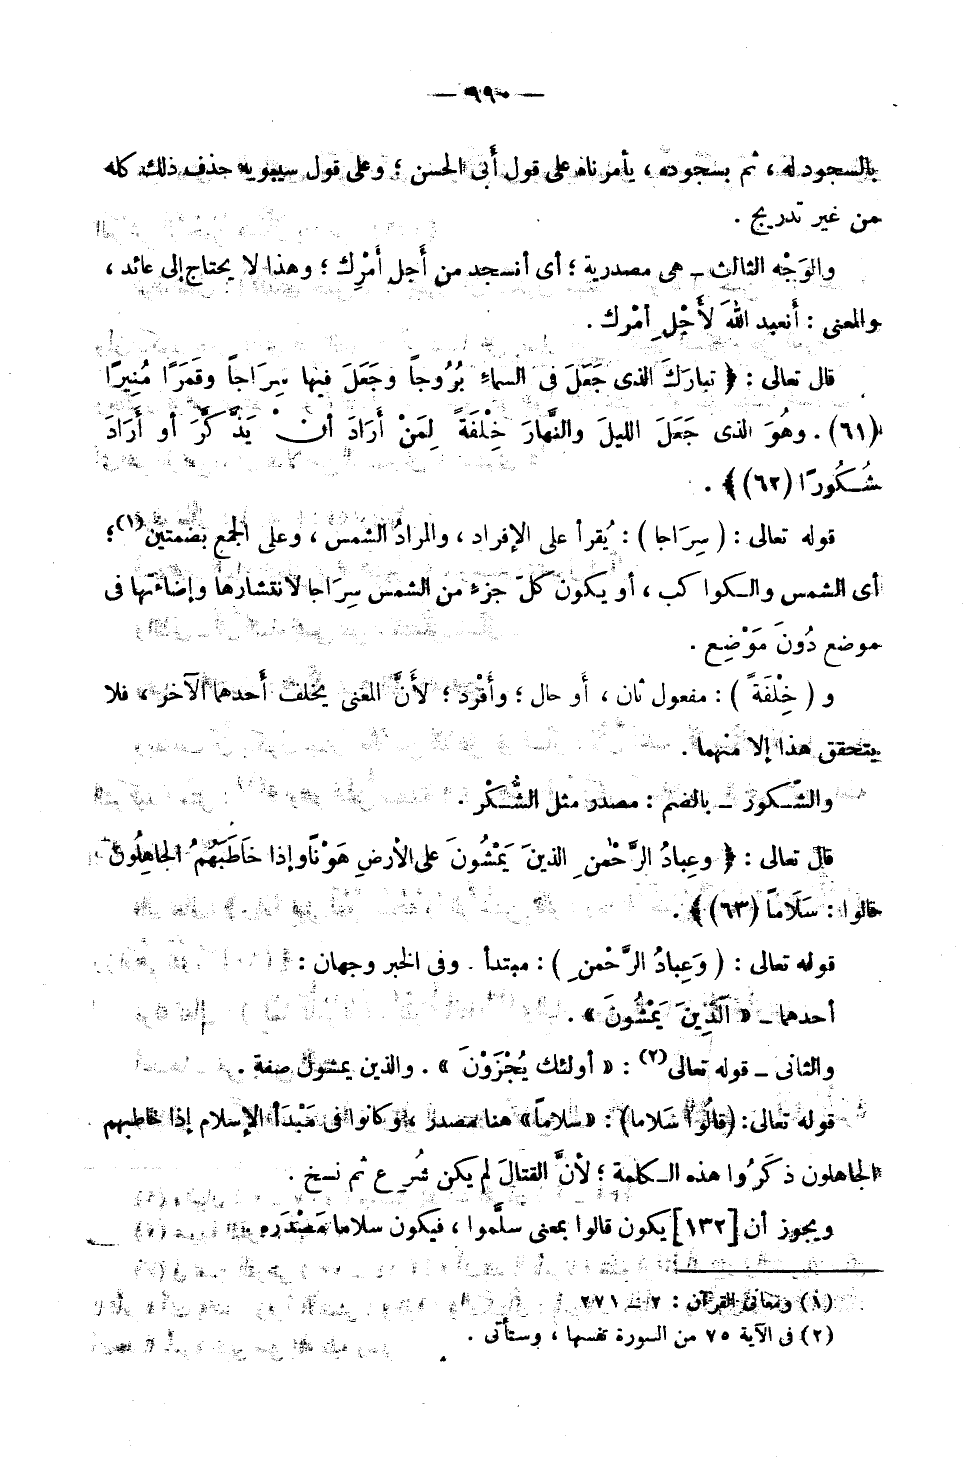 — ٩٩٠ —
بالسجود له ، ثم بسجوده ، يأمرناه على قول أبى الحسن ؛ وعلى قول سيبويه حذف ذلك كله
من غير تدريج .
والوَجْه الثالث ــ هى مصدرية ؛ أى أنسجد من أَجل أَمْرِك ؛ وهذا لا يحتاج إلى عائد ،
والمعنى : أَنعبد اللهَ لأَجْلِ أمْرك .
قال تعالى : ﴿ تبارَكَ الذى جَعَلَ فى السماءِ بُرُوجاً وجَعَلَ فيها سِرَاجاً وقَمَرًا مُنِيرًا
(٦١) . وهُوَ الذى جَعَلَ الليلَ والنَّهارَ خِلْفَةً لِمَنْ أَرَادَ أنْ يَذَّكَّرَ أو أَرَادَ
شُـكُورًا (٦٢) ﴾ .
قوله تعالى : ( سِرَاجا ) : يُقرأ على الإفراد ، والمرادُ الشمس ، وعلى الجمع بضمتين(١)؛
أى الشمس والـكواكب ، أو يكون كلّ جزء من الشمس سِرَاجا لانتشارها وإضاءتها فى
موضع دُونَ مَوْضِع .
و ( خِلْفَةً ) : مفعول ثان ، أَو حال ؛ وأفْرد ؛ لأَنَّ المعنى يخلف أَحدهما الآخر ، فلا
يتحقق هذا إلا منهما .
والشّكور ــ بالضم : مصدر مثل الشُّكْر .
قال تعالى : ﴿ وعِبادُ الرَّحْمٰنِ الذينَ يَمْشُونَ على الأرضِ هَوْنًا وإذا خَاطَبَهُمُ الجاهِلُونَ
قالوا : سَلَاماً (٦٣)﴾ .
قوله تعالى : ( وَعِبادُ الرَّحْمنِ ) : مبتدأ . وفى الخبر وجهان :
أحدهما ــ « الَّذِينَ يَمْشُونَ » .
والثانى ــ قوله تعالى(٢) : « أولئك يُجْزَوْنَ » . والذين يمشون صفة .
قوله تعالى: (قالُوا سَلاما) : «سلاماً» هنا مصدر ، وكانوا فى مَبْدَأ الإسلام إذا خاطبهم
الجاهلون ذكَرُوا هذه الـكلمة ؛ لأنَّ القتالَ لم يكن شُرِع ثم نسخ .
ويجوز أن [١٣٢] يكون قالوا بمعنى سلَّموا ، فيكون سلاما مَصْدَره .
(١) ومعانى القرآن : ٢ ــ ٢٧١
(٢) فى الآية ٧٥ من السورة نفسها ، وستأتى .